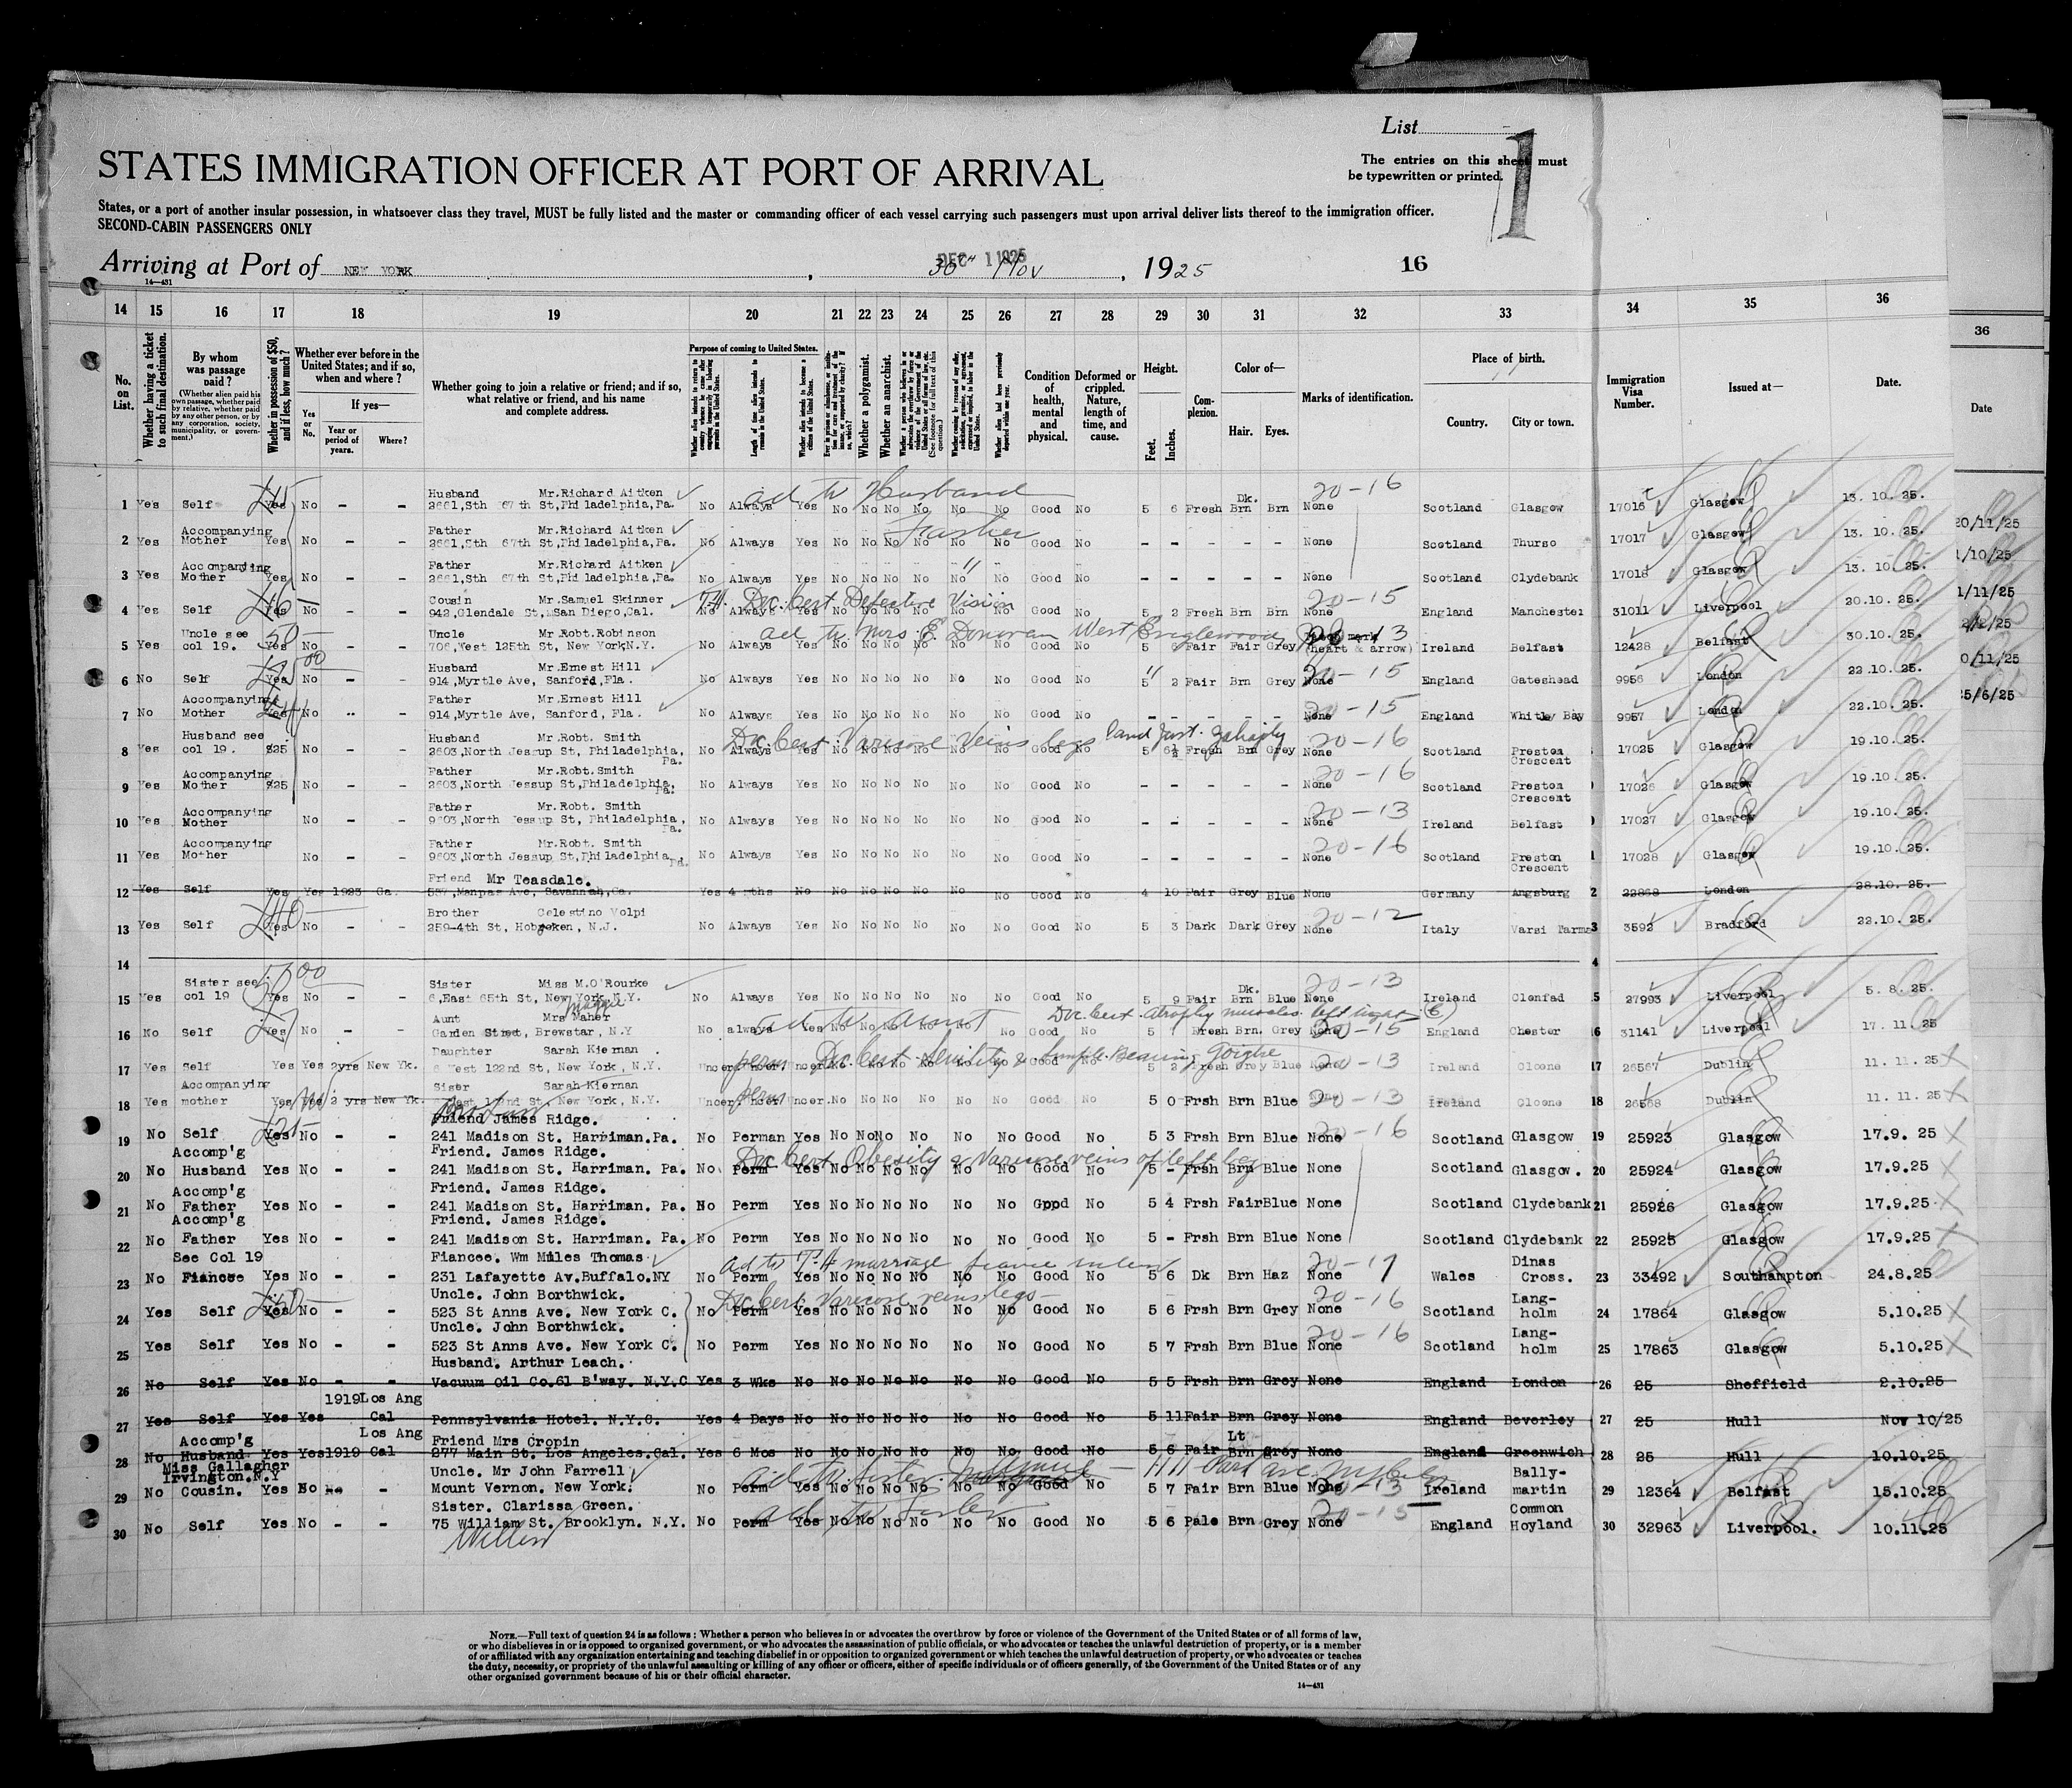 List
1
STATES IMMIGRATION OFFICER AT PORT OF ARRIVAL
The entries on this sheet must
be typewritten or printed.
States, or a port of another insular possession, in whatsoever class they travel, MUST be fully listed and the master or commanding officer of each vessel carrying such passengers must upon arrival deliver lists thereof to the immigration officer.
SECOND-CABIN PASSENGERS ONLY
Arriving at Port of NEW YORK, DEC 1 1925 30th Nov, 1925 16
14—431
14 15 16 17 18 19 20 21 22 23 24 25 26 27 28 29 30 31 32 33 34 35 36
No. on List.
Whether having a ticket to such final destination.
By whom was passage paid?
(Whether alien paid his own passage, whether paid by relative, whether paid by any other person, or by any corporation, society, municipality, or government.)
Whether in possession of $50, and if less, how much?
Whether ever before in the United States; and if so, when and where?
Yes or No.
If yes—
Year or period of years.
Where?
Whether going to join a relative or friend; and if so, what relative or friend, and his name and complete address.
Purpose of coming to United States.
Length of time alien intends to remain in the United States.
Whether alien intends to become a citizen of the United States.
Whether a polygamist.
Whether an anarchist.
Condition of health, mental and physical.
Deformed or crippled. Nature, length of time, and cause.
Height.
Feet. Inches.
Complexion.
Color of—
Hair. Eyes.
Marks of identification.
Place of birth.
Country. City or town.
Immigration Visa Number.
Issued at—
Date.
36
Date
ad to Husband 20-16
Husband Mr.Richard Aitken Dk.
1 Yes Self Yes No - - 2661,Sth 67th St,Philadelphia,Pa. No Always Yes No No No No No No Good No 5 6 Fresh Brn Brn None Scotland Glasgow 17016 Glasgow 13.10.25.
Accompanying Father Mr.Richard Aitken Father
2 Yes Mother Yes No - - 2661,Sth 67th St,Philadelphia,Pa. No Always Yes No No No No No No Good No - - - - - None Scotland Thurso 17017 Glasgow 13.10.25.
20/11/25
Accompanying Father Mr.Richard Aitken "
3 Yes Mother Yes No - - 2661,Sth 67th St,Philadelphia,Pa. No Always Yes No No No No No No Good No - - - - - None Scotland Clydebank 17018 Glasgow 13.10.25.
1/10/25
Cousin Mr.Samuel Skinner T.H. Doc. Cert Defective Vision 20-15
4 Yes Self Yes No - - 942,Glendale St, San Diego,Cal. No Always Yes No No No No No No Good No 5 2 Fresh Brn Brn None England Manchester 31011 Liverpool 20.10.25.
1/11/25
Uncle see Uncle Mr.Robt.Robinson ad to Mrs E. Donovan West Englewood 20-13
5 Yes col 19. 50 Yes No - - 706,West 125th St, New York,N.Y. No Always Yes No No No No No No Good No 5 6 Fair Fair Grey (heart & arrow) Ireland Belfast 12428 Belfast 30.10.25.
Husband Mr.Ernest Hill 20-15
6 No Self Yes No - - 914,Myrtle Ave, Sanford,Fla. No Always Yes No No No No No No Good No 5 2 Fair Brn Grey None England Gateshead 9956 London 22.10.25.
0/11/25
Accompanying Father Mr.Ernest Hill 20-15
7 No Mother Yes No - - 914,Myrtle Ave, Sanford, Fla. No Always Yes No No No No No No Good No - - - - - None England Whitley Bay 9957 London 22.10.25.
25/6/25
Husband see Husband Mr.Robt. Smith Doc. Cert. Varicose Veins legs 20-16
8 Yes col 19. $25 No - - 2603,North Jessup St, Philadelphia, Pa. No Always Yes No No No No No No Good No 5 6½ Fresh Brn Grey None Scotland Preston Crescent 17025 Glasgow 19.10.25.
Accompanying Father Mr.Robt.Smith 20-16
9 Yes Mother $25 No - - 2603,North Jessup St,Philadelphia, Pa. No Always Yes No No No No No No Good No - - - - - None Scotland Preston Crescent 17026 Glasgow 19.10.25.
Accompanying Father Mr.Robt. Smith 20-13
10 Yes Mother No - - 9603,North Jessup St, Philadelphia, Pa. No Always Yes No No No No No No good No - - - - - None Ireland Belfast 17027 Glasgow 19.10.25.
Accompanying Father Mr.Robt. Smith 20-16
11 Yes Mother No - - 9603,North Jessup St,Philadelphia Pa. No Always Yes No No No No No No Good No - - - - - None Scotland Preston Crescent 17028 Glasgow 19.10.25.
Friend Mr Teasdale.
12 Yes Self Yes Yes 1923 Ga. 537, Ave, Savannah,Ga. Yes 4 mths No No No No No No No Good No 4 10 Fair Grey Blue None Germany Augsburg 2 22868 London 28.10.25.
Brother Celestino Volpi 20-12
13 Yes Self £40 Yes No - - 259-4th St, Hoboken, N.J. No Always Yes No No No No No No Good No 5 3 Dark Dark Grey None Italy Varsi Parma 3 3592 Bradford 22.10.25.
14 4
Sister see Sister Miss M.O'Rourke Dk. 20-13
15 Yes col 19 50 Yes No - - 6,East 65th St, New York,N.Y. No Always Yes No No No No No No Good No 5 9 Fair Brn Blue None Ireland Clonfad 5 27993 Liverpool 5.8.25.
Aunt Mrs Maher ad to Aunt Doc. Cert. atrophy muscles left
16 No Self Yes No - - Garden Street, Brewstar, N.Y No always Yes No No No No No No Good No 5 1 Fresh Brn. Grey None 20-15 England Chester 6 31141 Liverpool 17.11.25
Daughter Sarah Kiernan perm Doc. Cert. Senility & Simple Goitre 20-13
17 Yes Self Yes Yes 2yrs New Yk. West 122nd St, New York, N.Y. Uncer Uncer. Uncer No No No No No No Good No 5 2 Fresh Grey Blue None Ireland Cloone 17 26567 Dublin 11.11.25
Accompanying Sister Sarah Kiernan perm 20-13
18 Yes mother Yes Yes 2 yrs New Yk. East 122nd St, New York, N.Y. Uncer Uncer Uncer. No No No No No No Good No 5 0 Frsh Brn Blue Ireland Cloone 18 26568 Dublin 11.11.25
Friend James Ridge. 20-16
19 No Self Yes No - - 241 Madison St. Harriman.Pa. No Perman Yes No No No No No No Good No 5 3 Frsh Brn Blue None Scotland Glasgow 19 25923 Glasgow 17.9.25
Accomp'g Friend. James Ridge. Doc. Cert. Obesity & Varicose veins of left leg
20 No Husband Yes No - - 241 Madison St. Harriman. Pa. No Perm Yes No No No No No No Good No 5 - Frsh Brn Blue None Scotland Glasgow. 20 25924 Glasgow 17.9.25
Accomp'g Friend. James Ridge.
21 No Father Yes No - - 241 Madison St. Harriman. Pa. No Perm Yes No No No No No No Good No 5 4 Frsh Fair Blue None Scotland Clydebank 21 25926 Glasgow 17.9.25
Accomp'g Friend. James Ridge.
22 No Father Yes No - - 241 Madison St. Harriman. Pa. No Perm Yes No No No No No No Good No 5 - Frsh Brn Blue None Scotland Clydebank 22 25925 Glasgow 17.9.25
See Col 19 Fiancee. Wm Miles Thomas ad to T.H. marriage 20-17 Dinas
23 No Fiancee Yes No - - 231 Lafayette Av.Buffalo.NY No Perm Yes No No No No No No Good No 5 6 Dk Brn Haz None Wales Cross. 23 33492 Southampton 24.8.25
Uncle. John Borthwick. Doc Cert. Varicose veins legs 20-16 Lang-
24 Yes Self Yes No - - 523 St Anns Ave. New York C. No Perm Yes No No No No No No Good No 5 6 Frsh Brn Grey None Scotland holm 24 17864 Glasgow 5.10.25
Uncle. John Borthwick. 20-16 Lang-
25 Yes Self Yes No - - 523 St Anns Ave. New York C. No Perm Yes No No No No No No Good No 5 7 Frsh Brn Blue None Scotland holm 25 17863 Glasgow 5.10.25
Husband. Arthur Leach.
26 No Self Yes No - - Vacuum Oil Co.61 B'way. N.Y.C Yes 3 Wks No No No No No No No Good No 5 5 Frsh Brn Grey None England London 26 25 Sheffield 2.10.25
1919 Los Ang
27 Yes Self Yes Yes Cal Pennsylvania Hotel. N.Y.C. Yes 4 Days No No No No No No No Good No 5 11 Fair Brn Grey None England Beverley 27 25 Hull Nov 10/25
Accomp'g Los Ang Friend Mrs Cropin Lt
28 No Husband Yes Yes 1919 Cal 277 Main St. Los Angeles.Cal. Yes 6 Mos No No No No No No No Good No 5 6 Fair Brn Grey None England Greenwich 28 25 Hull 10.10.25
Miss Gallagher
Irvington.N.Y Uncle. Mr John Farrell ad to Sister 1111 Park ave. 20-13 Bally-
29 No Cousin. Yes No - Mount Vernon. New York. No Perm Yes No No No No No No Good No 5 7 Fair Brn Blue None Ireland martin 29 12364 Belfast 15.10.25
Sister. Clarissa Green. ad to Sister 20-15 Common
30 No Self Yes No - - 75 William St. Brooklyn. N.Y. No Perm Yes No No No No No No Good No 5 6 Pale Brn Grey None England Hoyland 30 32963 Liverpool. 10.11.25
NOTE.—Full text of question 24 is as follows: Whether a person who believes in or advocates the overthrow by force or violence of the Government of the United States or of all forms of law,
or who disbelieves in or is opposed to organized government, or who advocates the assassination of public officials, or who advocates or teaches the unlawful destruction of property, or is a member
of or affiliated with any organization entertaining and teaching disbelief in or opposition to organized government or which teaches the unlawful destruction of property, or who advocates or teaches
the duty, necessity, or propriety of the unlawful assaulting or killing of any officer or officers, either of specific individuals or of officers generally, of the Government of the United States or of any
other organized government because of his or their official character.
14—431